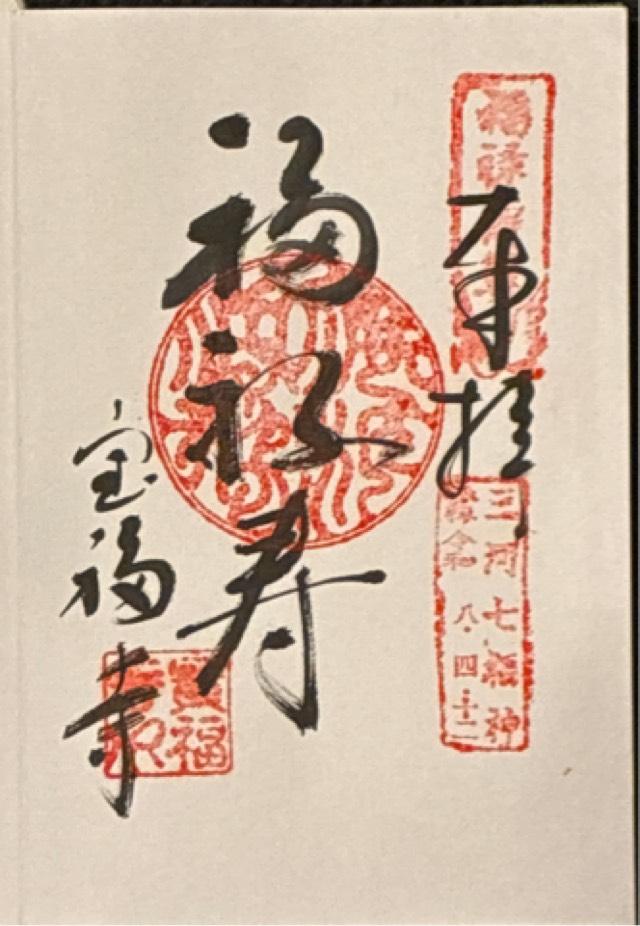 奉拝
三河七福神
令和 八.四.十二
福禄寿
宝福寺
寳福